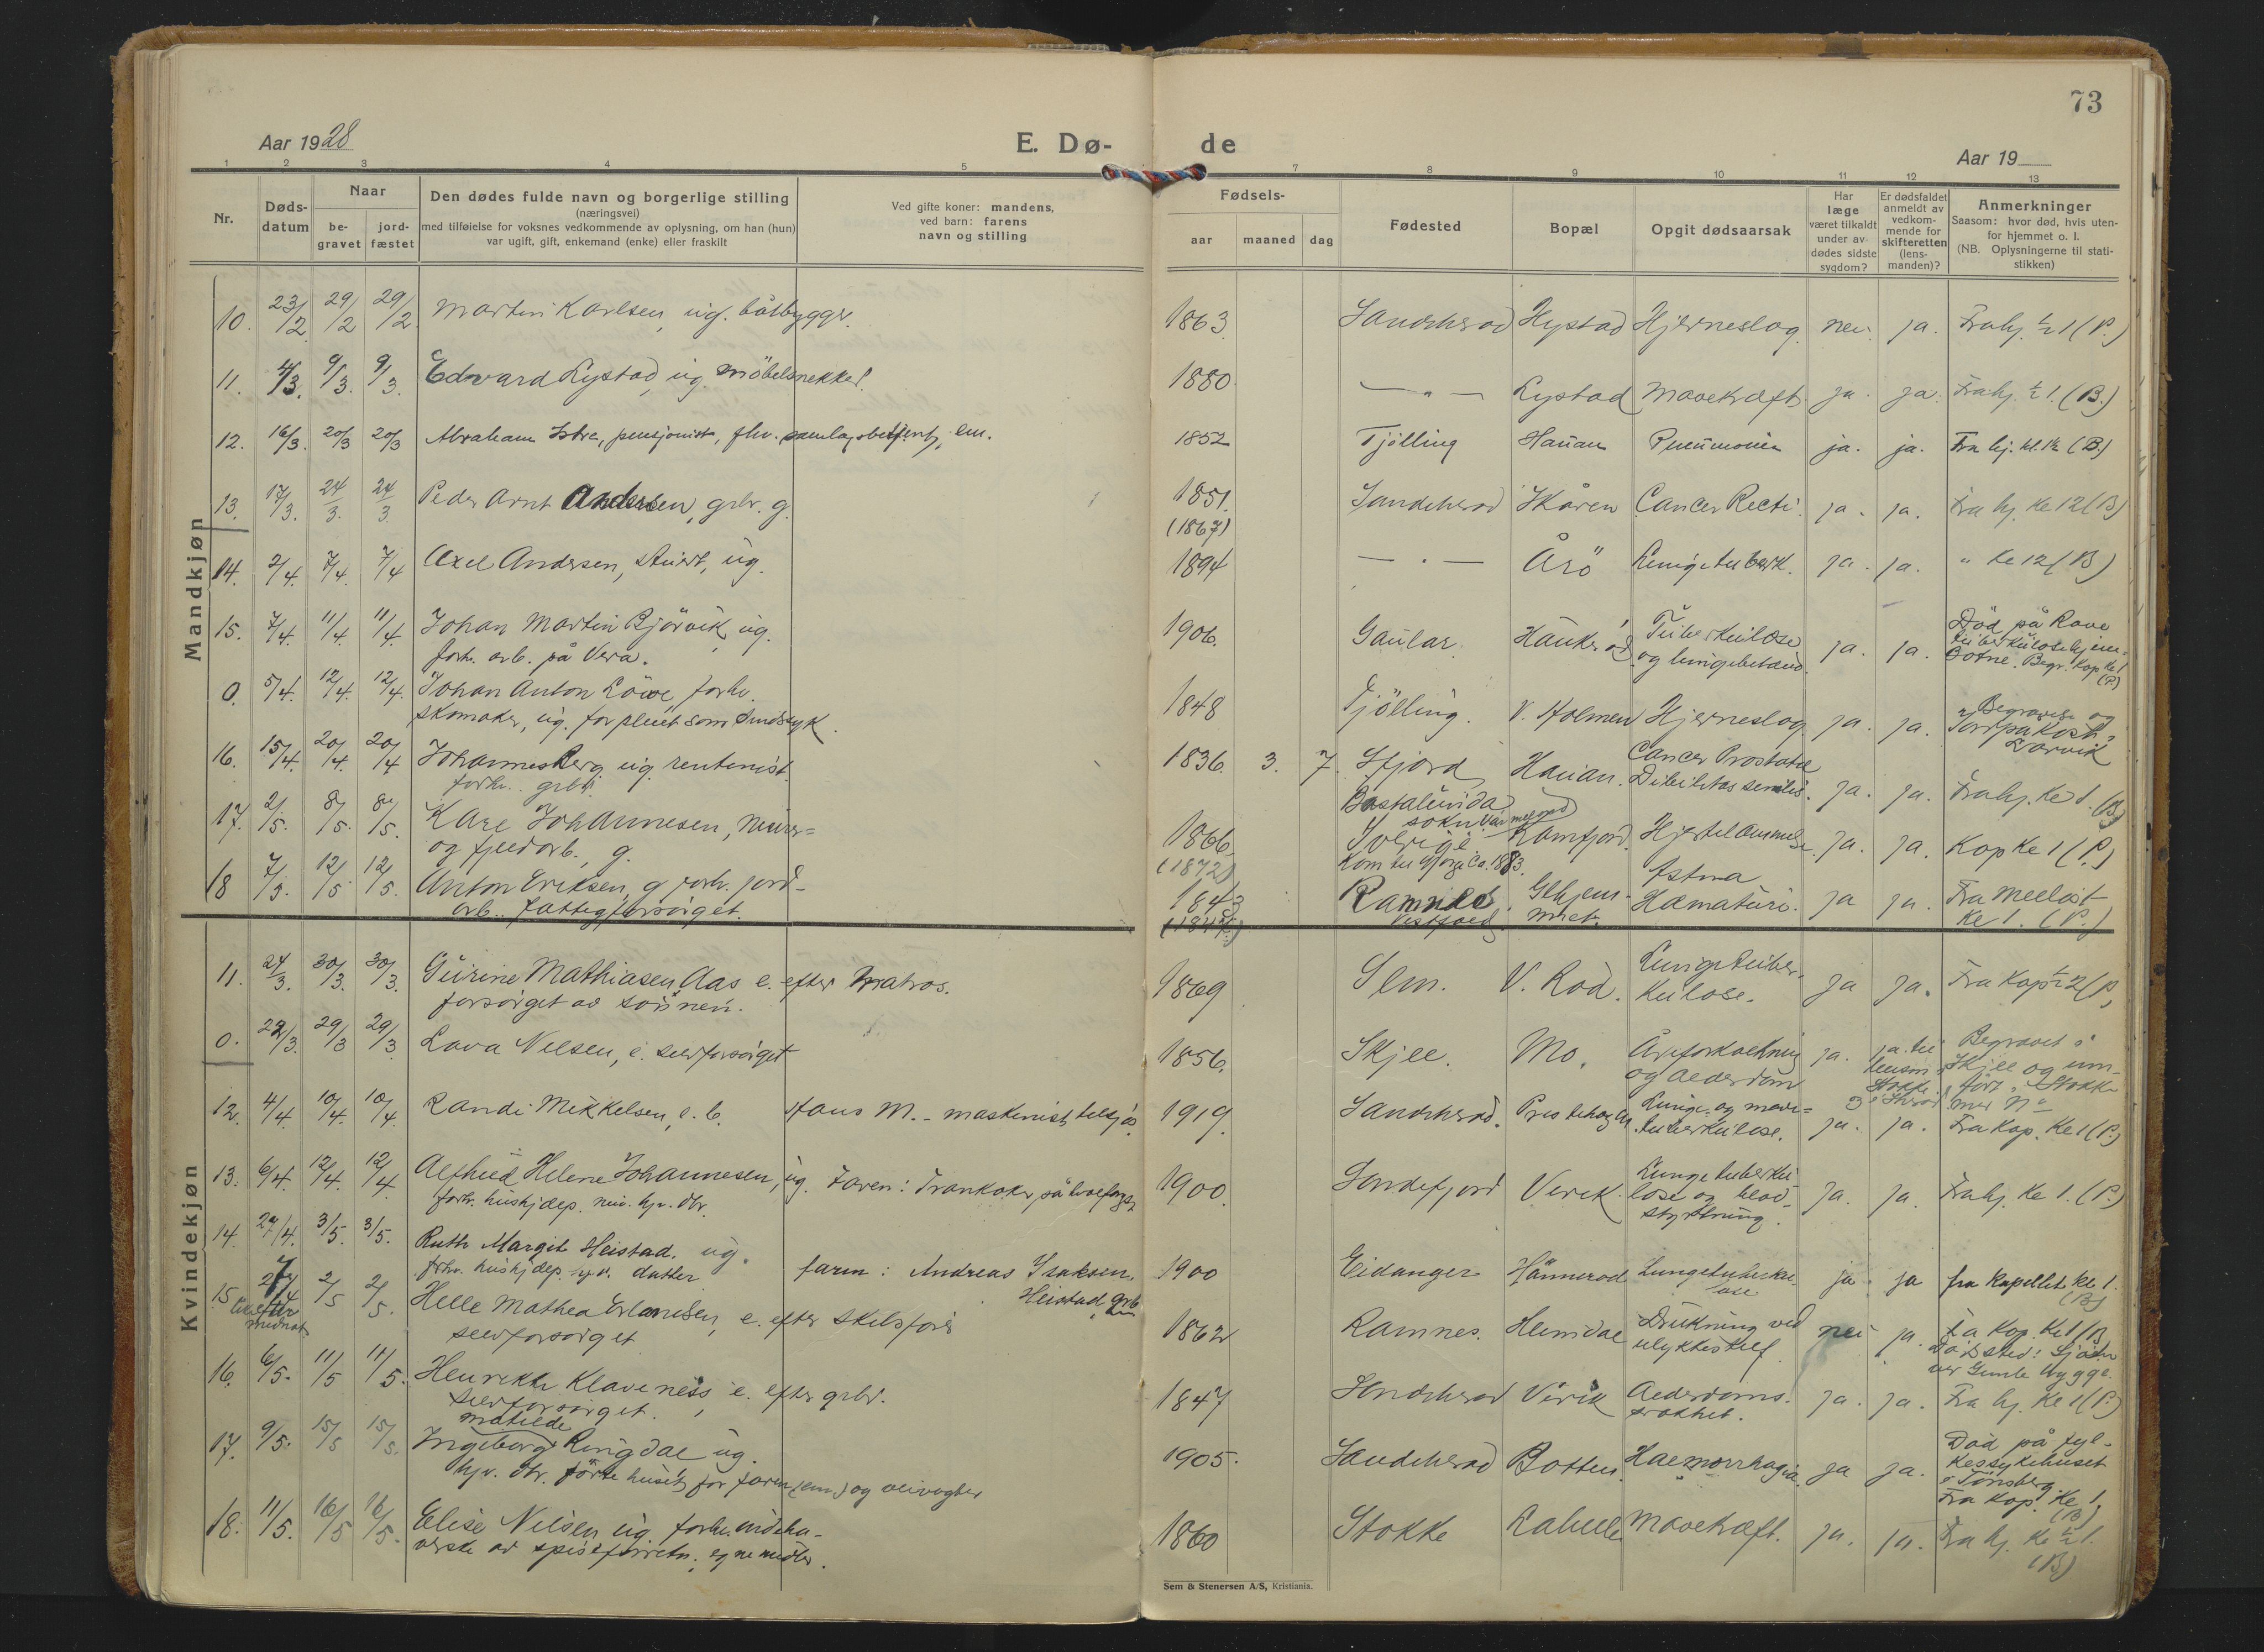 73
Aar 1928
E. Dø- de
Aar 19
1 2 3 4 5 7 8 9 10 11 12 13
Nr.
Døds-
datum
Naar
be-
gravet
jord-
fæstet
Den dødes fulde navn og borgerlige stilling
(næringsvei)
med tilføielse for voksnes vedkommende av oplysning, om han (hun)
var ugift, gift, enkemand (enke) eller fraskilt
Ved gifte koner: mandens,
ved barn: farens
navn og stilling
Fødsels-
aar maaned dag
Fødested
Bopæl
Opgit dødsaarsak
Har
læge
været tilkaldt
under av-
dødes sidste
sygdom?
Er dødsfaldet
anmeldt av
vedkom-
mende for
skifteretten
(lens-
manden)?
Anmerkninger
Saasom: hvor død, hvis uten-
for hjemmet o. l.
(NB. Oplysningerne til stati-
stikken)
Mandkjøn
10. 23/2 29/2 29/2 Martin Karlsen, ug. båtbygger. 1863. Sandeherad Hystad Hjerneslag. nei. ja. Fra hj. ½ 1 (P.)
11. 4/3. 9/3. 9/3. Edvard Lystad, ug. möbelsnekker. 1880. — " — Lystad Mavekræft. ja. ja. Fra hj. ½ 1. (B.)
12. 16/3. 20/3 20/3 Abraham Istre, pensjonist, fhv. samlagsbetjent, em. 1852 Tjölling Hauan Pneumonia ja. ja. Fra hj. kl. 1½ (B.)
13. 17/3. 24/3. 24/3. Peder Arnt Andersen, grbr. g. 1851. (1867) Sandeherad Skåren Cancer Recti. ja. ja. Fra hj. Kl 12 (B)
14. 2/4. 7/4. 7/4 Axel Andersen, stuert, ug. 1894 — " — Årö Lungetuberk. ja. ja. " Kl 12 (B)
15. 7/4. 11/4 11/4. Johan Martin Björvik, ug.
forh. arb. på Vera. 1906. Gaular. Haukerød Tuberkulose
og lungebetænd. ja. ja. Død på Rove
tuberkulosehjem.
Botne. Begr. Kap. Kl 1
(P.)
0. 5/4. 12/4. 12/4. Johan Anton Löwe, forhv.
skomaker, ug. forpleiet som sindssyk. 1848 Tjölling. V. Holmen Hjerneslag ja. ja. Begravelse og
Larvik
16. 15/4. 20/4. 20/4 Johannes Berg ug. rentenist.
forhv. grbr. 1836. 3. 7. Sfjord Hauan. Cancer Prostatæ
Debilitas senilis. ja. ja. Fra hj. Kl 1. (B)
17. 2/5. 8/5. 8/5. Karl Johannesen, murer=
og fjeldarb., g. 1866. (1872) Bastalunda
sokn Värmeland
Sverige
Kom til Norge Ca. 1883. Kamfjord. Hjertelammelse. ja. ja. Kap Kl 1 (P.)
18 7/5. 12/5 12/5. Anton Eriksen, g. forh. jord-
arb. fattigforsörget. 1843 Ramnes
Vestfold Glhjem-
met. Astma
Hæmaturi. ja ja. Fra
Kl 1. (P.)
Kvindekjøn
11. 24/3. 30/3. 30/3. Gurine Mathiasen Aas e. efter Matros.
forsörget av sönnen. 1869 Slem. V. Rød. Lungetuber-
kulose. ja ja. Fra Kap ½ 2 (P.)
0. 22/3. 29/3 29/3 Lava Nilsen, e. selvforsörget 1856. Skjee. Mo. Åreforkalkning
og alderdom ja. ja. til
lensm.
Stokke. Begravet i
Skjee og inn-
fört i Stokke
med No
12. 4/4. 10/4. 10/4. Randi Mikkelsen, e. b. Hans M. - maskinist, tilsjøs 1919. Sandeherad. Prestehagen Lunge og mave=
tuberkulose. ja. ja. Fra Kap. Kl 1 (P.)
13. 6/4. 12/4. 12/4. Alfhild Helene Johannesen, ug.
forh. hushjelp. nuv. hjv. dtr. Faren: Trankoker på hvalfangst. 1900. Sandefjord Virik. Lungetuberku-
lose og blod-
styrtning. ja. ja. Fra hj. Kl 1. (P.)
14. 27/4. 3/5. 3/5. Ruth Margit Heistad. ug.
forhv. hushjelp. hjv. datter faren: Andreas Isaksen
Heistad, grb. 1900 Eidanger Hännerød Lungetuberku-
lose ja. ja fra kapellet kl. 1.
(B)
15. 27/4
like efter
midnat 2/5 2/5. Helle Mathea Erlandsen, e. efter skibsförer
selvforsörget 1862 Ramnes. Heimdal Drukning ved
ulykkestilf. nei ja. fra Kap. Kl 1 (B)
Dödssted: Sjöen
ved Gimle brygge.
16. 6/5. 11/5 11/5. Henrikke Klaveness, e. efter grbr.
selvforsörget. 1847 Sandeherad Virik Alderdoms-
svakhet. ja. ja. Fra hj. Kl 1 (P.)
17. 9/5. 15/5 15/5. Ingeborg Matilde Ringdal ug.
hjv. dtr. förte huset for faren (em.) og veivogter 1905. Sandeherad Botten. Haemorrhagia. ja ja. Död på fyl-
kessykehuset
i Tönsberg.
Fra Kap. Kl 1.
(B)
18. 11/5. 16/5 16/5. Elise Nilsen ug. forhv. indeha-
verske av spiseforretn. egne midler. 1860 Stokke Lahelle Mavekræft. ja. ja. Fra hj. Kl ½ 1.
(B)
Sem & Stenersen A/S, Kristiania.